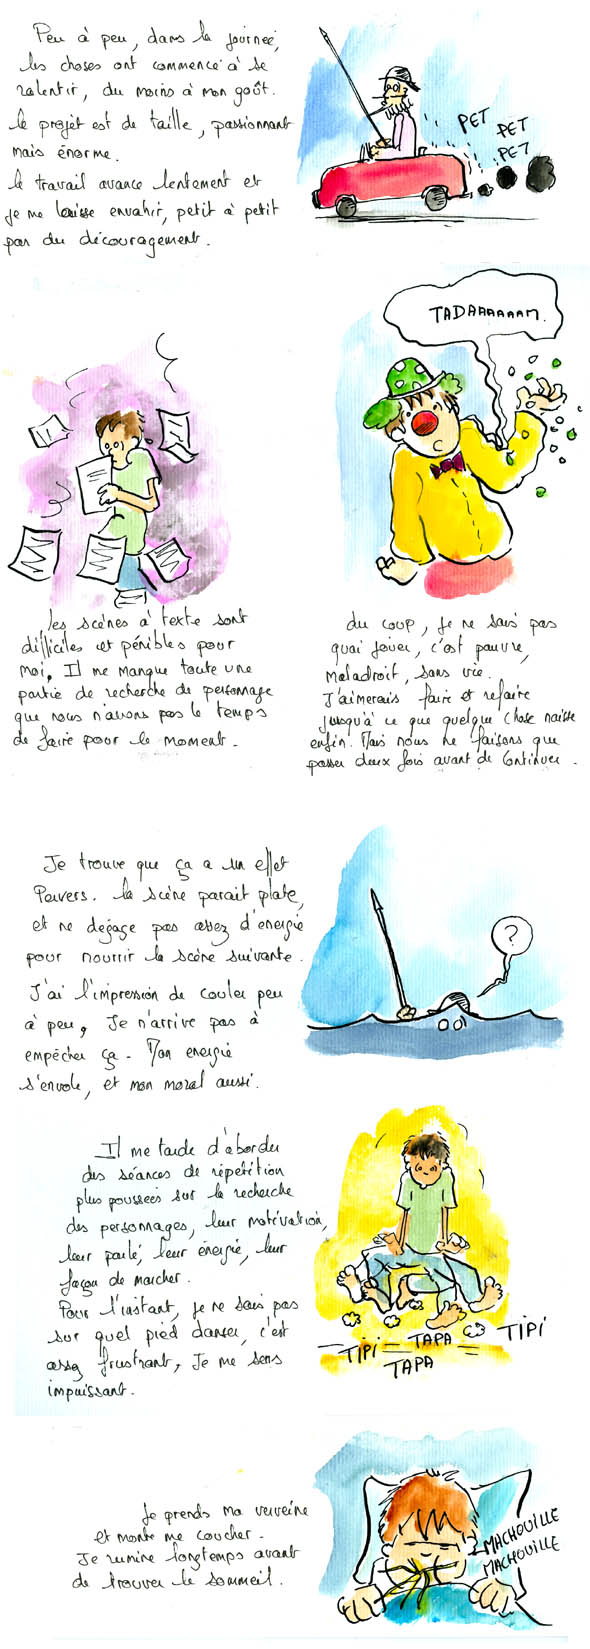 Peu à peu, dans la journée,
les choses ont commencé à se
ralentir, du moins à mon goût.
le projet est de taille, passionnant
mais énorme.
le travail avance lentement et
je me laisse envahir, petit à petit
par du découragement.
PET
PET
PET
TADAAAAAAM.
les scènes à texte sont
difficiles et pénibles pour
moi. Il me manque toute une
partie de recherche de personnage
que nous n'avons pas le temps
de faire pour le moment.
du coup, je ne sais pas
quoi jouer, c'est pauvre,
maladroit, sans vie.
J'aimerais faire et refaire
jusqu'à ce que quelque chose naisse
enfin. Mais nous ne faisons que
passer deux fois avant de continuer.
Je trouve que ça a un effet
Pervers. la scène parait plate,
et ne dégage pas assez d'énergie
pour nourrir la scène suivante.
J'ai l'impression de couler peu
à peu, Je n'arrive pas à
empêcher ça. Mon energie
s'envole, et mon moral aussi.
?
Il me tarde d'aborder
des séances de répétition
plus poussées sur la recherche
des personnages, leur motivation,
leur parlé, leur énergie, leur
façon de marcher.
Pour l'instant, je ne sais pas
sur quel pied danser, c'est
assez frustrant, Je me sens
impuissant.
TIPI TAPA TIPI
TAPA
Je prends ma verveine
et monte me coucher.
Je rumine longtemps avant
de trouver le sommeil.
MACHOUILLE
MACHOUILLE